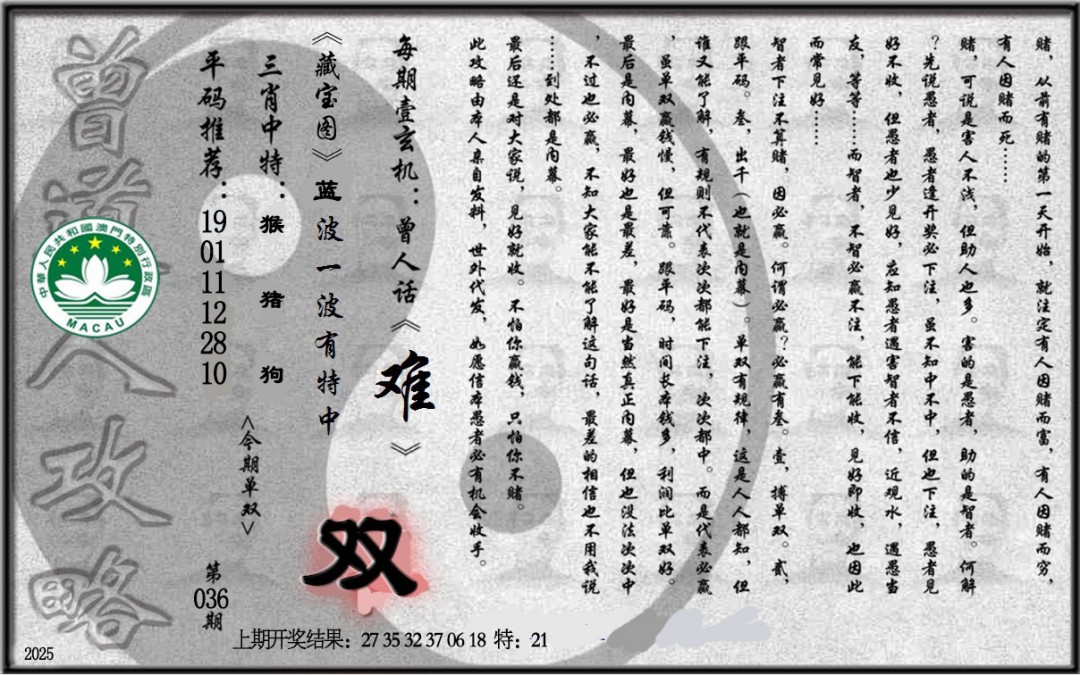 赌，从前有赌的第一天开始，就注定有人因赌而富，有人因赌而穷，
有人因赌而死……
赌，可说是害人不浅，但助人也多。害的是愚者，助的是智者。何解
？先说愚者，愚者逢开奖必下注，虽不知中不中，但也下注，愚者见
好不收，但愚者也少见好，应知愚者遇害智者不信，近观水，遇愚当
友，等等……而智者，不智必赢不注，能下能收，见好即收，也因此
而常见好……
智者下注不算赌，因必赢。何谓必赢？必赢有叁。壹，搏单双。贰，
跟平码。叁，出千（也就是内幕）。单双有规律，这是人人都知，但
谁又能了解，有规则不代表次次都能下注，次次都中。而是代表必赢
，虽单双赢钱慢，但可靠。跟平码，时间长本钱多，利润比单双好。
最后是内幕，最好也是最差，最好是当然真正内幕，但也没法次次中
，不过也必赢，不知大家能不能了解这句话，最差的相信也不用我说
……到处都是内幕。
最后还是对大家说，见好就收。不怕你赢钱，只怕你不赌。
此攻略由本人亲自发料，世外代发，如愿信本愚者必有机会收手。
每期壹玄机：曾人话《难》
《藏宝图》蓝波一波有特中
双
三肖中特：猴 猪 狗
<今期单双>
平码推荐：19 01 11 12 28 10
第036期
曾道人攻略
中華人民共和國澳門特別行政區
MACAU
上期开奖结果：27 35 32 37 06 18 特：21
2025